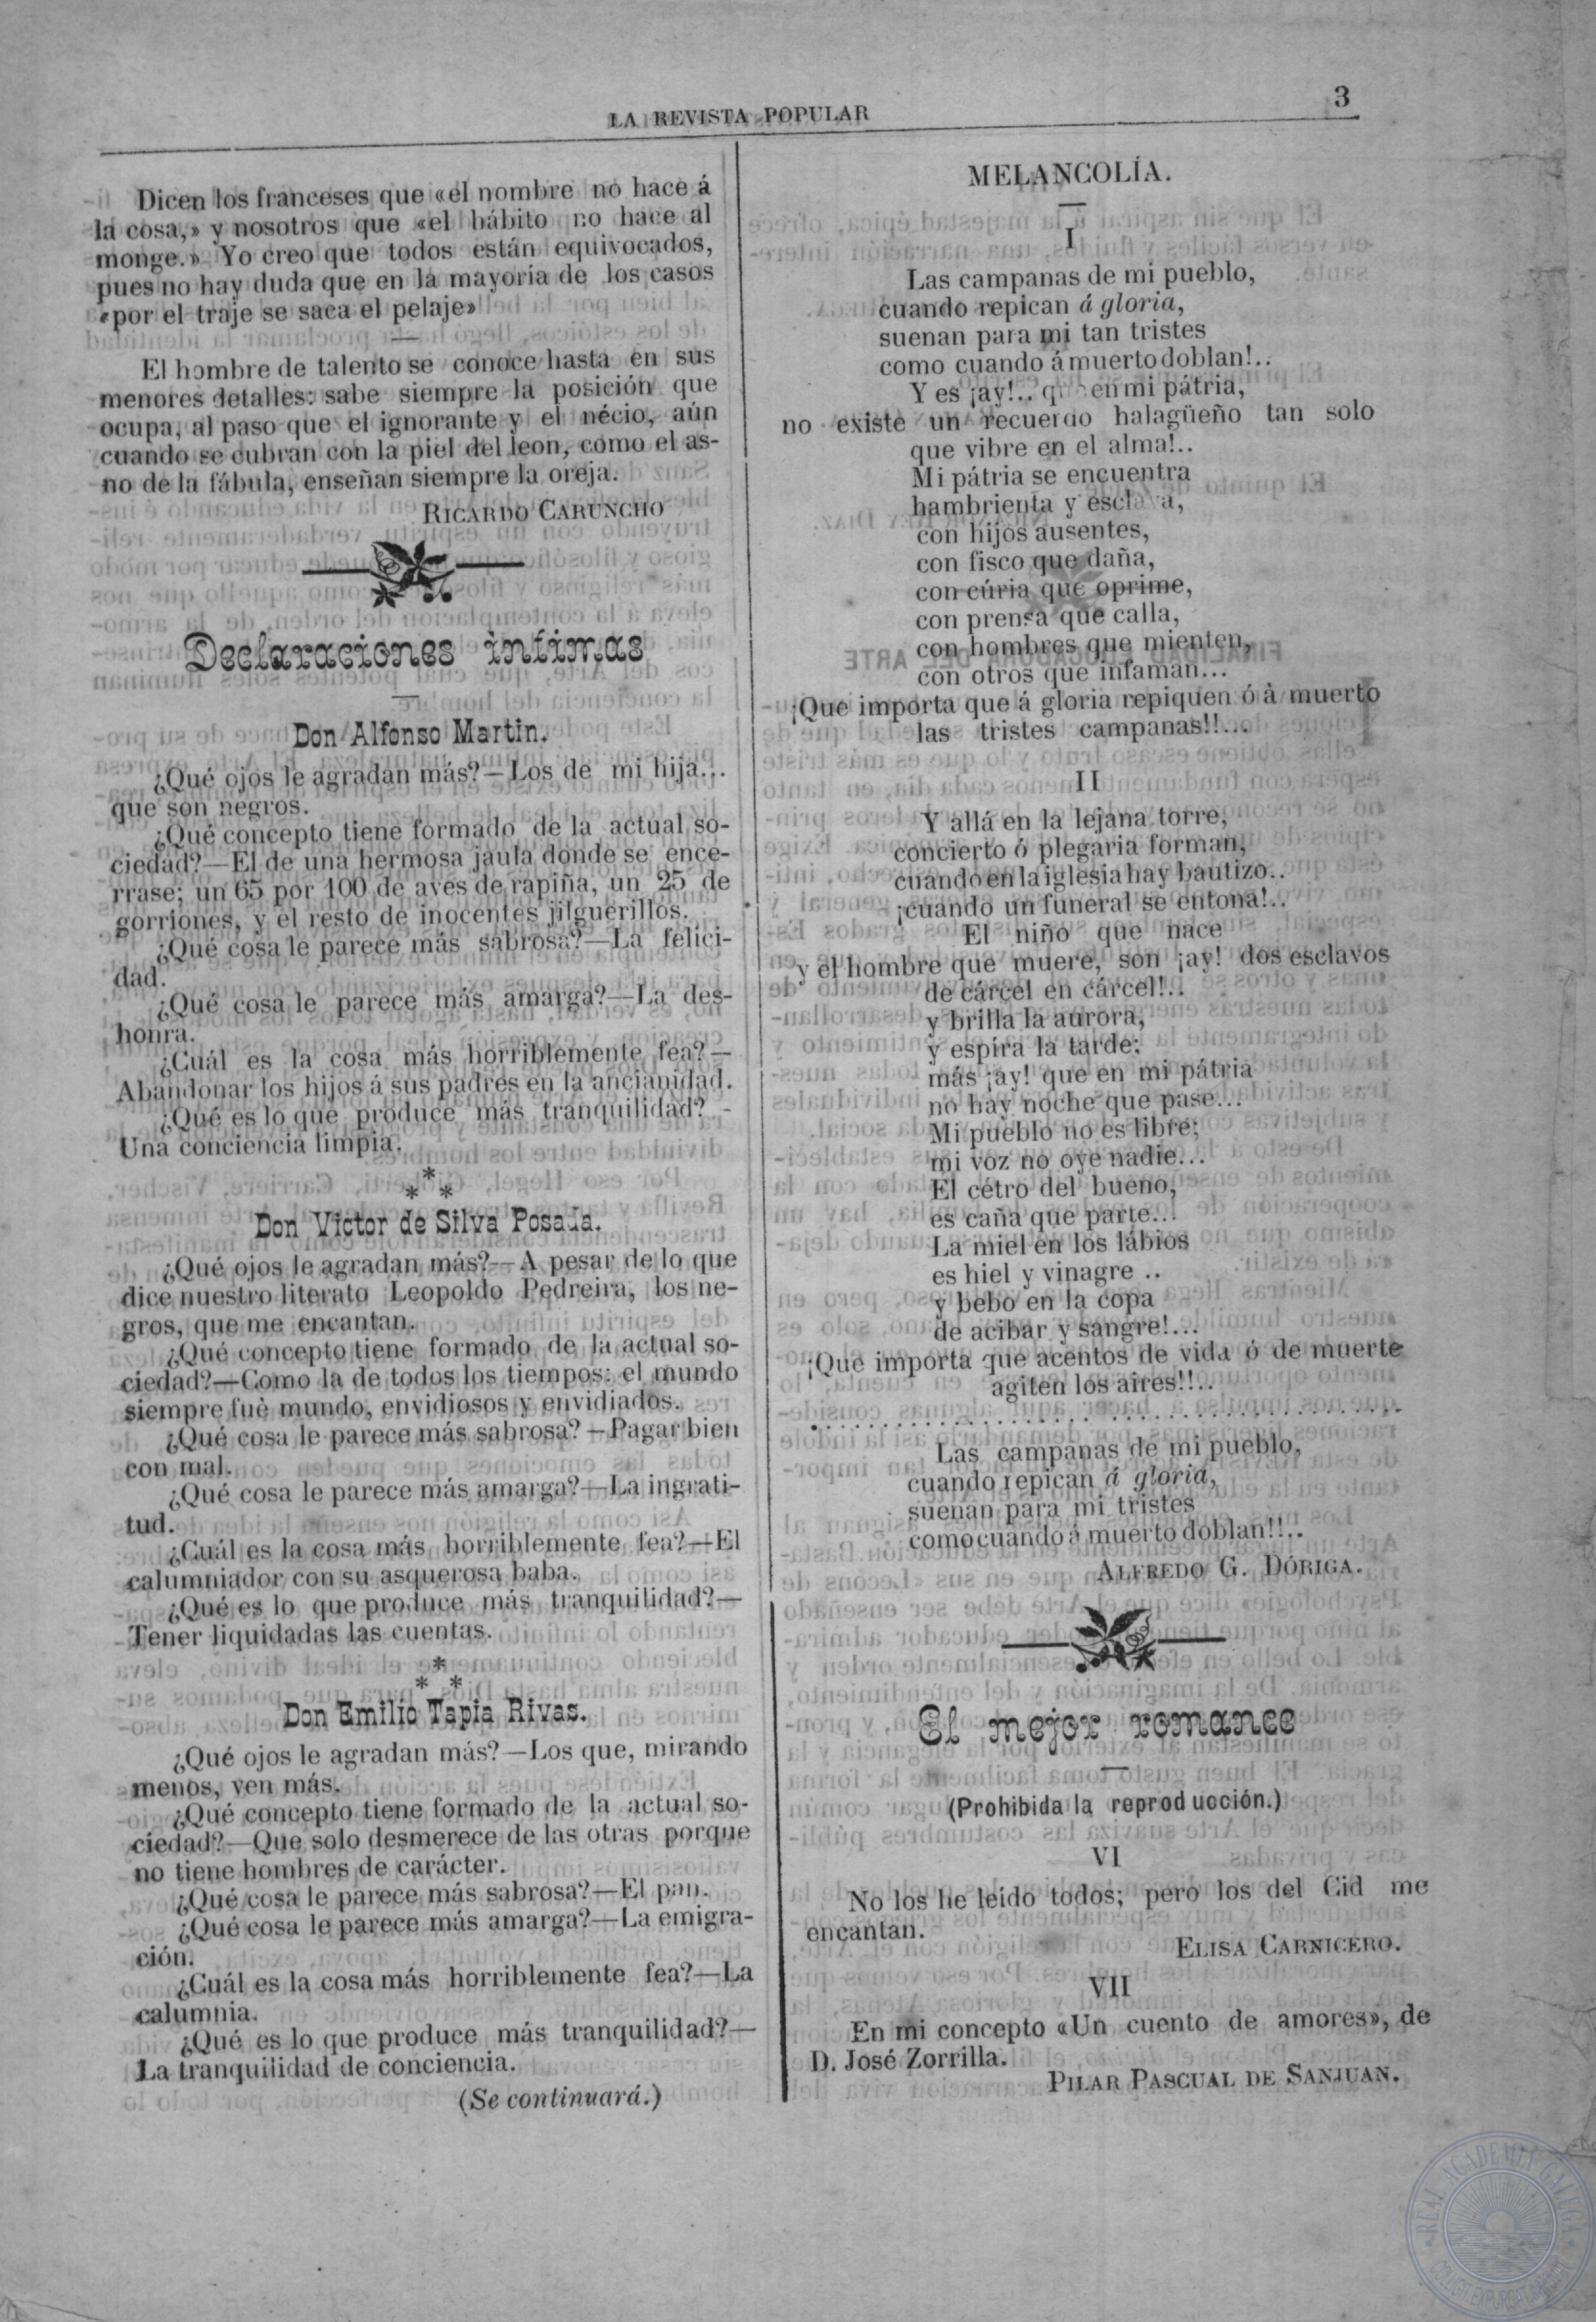 LA REVISTA POPULAR
3
Dicen los franceses que «el nombre no hace á
la cosa,» y nosotros que «el hábito no hace al
monge.» Yo creo que todos están equivocados,
pues no hay duda que en la mayoria de los casos
«por el traje se saca el pelaje»
El hombre de talento se conoce hasta en sus
menores detalles: sabe siempre la posición que
ocupa, al paso que el ignorante y el nécio, aún
cuando se cubran con la piel del leon, como el as-
no de la fábula, enseñan siempre la oreja.
RICARDO CARUNCHO
Declaraciones intimas
Don Alfonso Martin.
¿Qué ojos le agradan más?—Los de mi hija...
que son negros.
¿Qué concepto tiene formado de la actual so-
ciedad?—El de una hermosa jaula donde se ence-
rrase; un 65 por 100 de aves de rapiña, un 25 de
gorriones, y el resto de inocentes jilguerillos.
¿Qué cosa le parece más sabrosa?—La felici-
dad.
¿Qué cosa le parece más amarga?—La des-
honra.
¿Cuál es la cosa más horriblemente fea?—
Abandonar los hijos á sus padres en la ancianidad.
¿Qué es lo que produce más tranquilidad? -
Una conciencia limpia.
*
* *
Don Victor de Silva Posada.
¿Qué ojos le agradan más?—A pesar de lo que
dice nuestro literato Leopoldo Pedreira, los ne-
gros, que me encantan.
¿Qué concepto tiene formado de la actual so-
ciedad?—Como la de todos los tiempos: el mundo
siempre fué mundo, envidiosos y envidiados.
¿Qué cosa le parece más sabrosa?—Pagar bien
con mal.
¿Qué cosa le parece más amarga?—La ingrati-
tud.
¿Cuál es la cosa más horriblemente fea?—El
calumniador con su asquerosa baba.
¿Qué es lo que produce más tranquilidad?—
Tener liquidadas las cuentas.
*
* *
Don Emilio Tapia Rivas.
¿Qué ojos le agradan más?—Los que, mirando
menos, ven más.
¿Qué concepto tiene formado de la actual so-
ciedad?—Que solo desmerece de las otras porque
no tiene hombres de carácter.
¿Qué cosa le parece más sabrosa?—El pan.
¿Qué cosa le parece más amarga?—La emigra-
ción.
¿Cuál es la cosa más horriblemente fea?—La
calumnia.
¿Qué es lo que produce más tranquilidad?—
La tranquilidad de conciencia.
(Se continuará.)
MELANCOLÍA.
I
Las campanas de mi pueblo,
cuando repican á gloria,
suenan para mi tan tristes
como cuando á muerto doblan!..
Y es ¡ay!.. que en mi pátria,
no existe un recuerdo halagüeño tan solo
que vibre en el alma!..
Mi pátria se encuentra
hambrienta y esclava,
con hijos ausentes,
con fisco que daña,
con cúria que oprime,
con prensa que calla,
con hombres que mienten,
con otros que infaman...
¡Que importa que á gloria repiquen ó à muerto
las tristes campanas!!...
II
Y allá en la lejana torre,
concierto ó plegaria forman,
cuando en la iglesia hay bautizo..
¡cuando un funeral se entona!..
El niño que nace
y el hombre que muere, son ¡ay! dos esclavos
de cárcel en cárcel!..
y brilla la aurora,
y espira la tarde;
más ¡ay! que en mi pátria
no hay noche que pase...
Mi pueblo no es libre;
mi voz no oye nadie...
El cétro del bueno,
es caña que parte...
La miel en los lábios
es hiel y vinagre ..
y bebo en la copa
de acibar y sangre!...
¡Que importa que acentos de vida ó de muerte
agiten los aires!!..
Las campanas de mi pueblo,
cuando repican á gloria,
suenan para mi tristes
como cuando á muerto doblan!!..
ALFREDO G. DÓRIGA.
El mejor romance
(Prohibida la reproducción.)
VI
No los he leido todos; pero los del Cid me
encantan.
ELISA CARNICERO.
VII
En mi concepto «Un cuento de amores», de
D. José Zorrilla.
PILAR PASCUAL DE SANJUAN.
REAL ACADEMIA GALLEGA